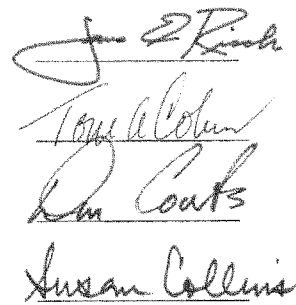 James E Risch
Tom A Coburn
Dan Coats
Susan Collins